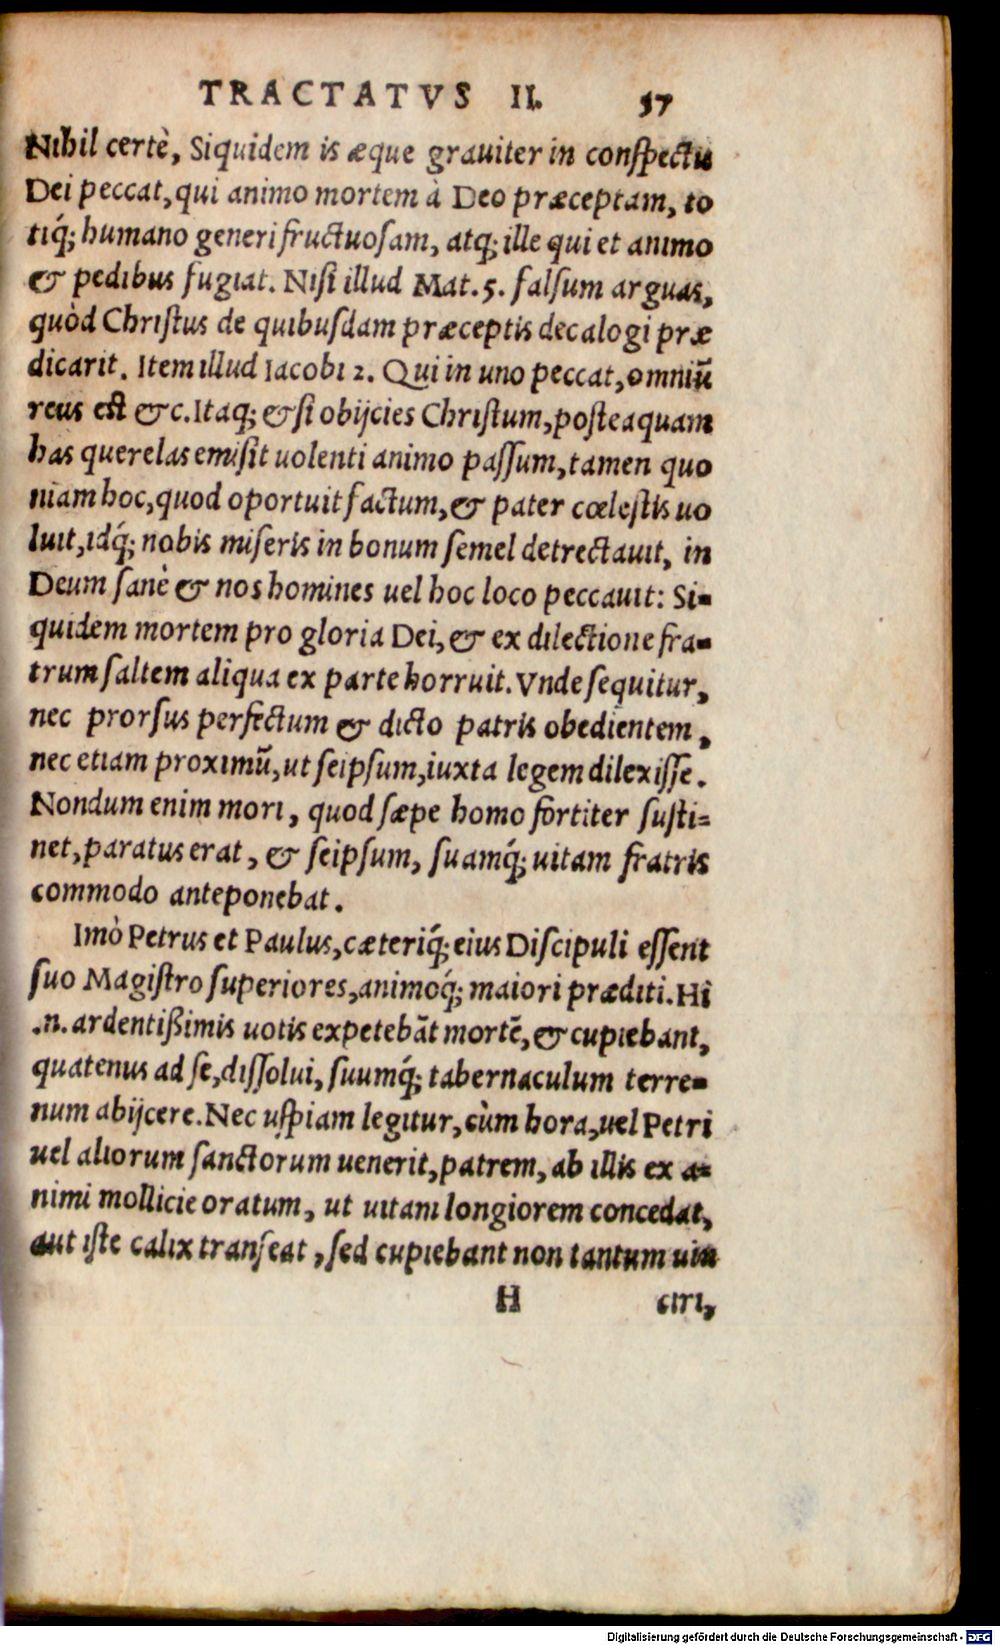 TRACTATVS II. 57
Nihil certè, Siquidem is æque grauiter in conſpectu
Dei peccat, qui animo mortem à Deo præceptam, to
tiq́; humano generi fructuoſam, atq; ille qui et animo
& pedibus fugiat. Niſi illud Mat. 5. falſum arguas,
quòd Chriſtus de quibuſdam præceptis decalogi præ
dicarit. Item illud Iacobi 2. Qui in uno peccat, omniũ
reus eſt &c. Itaq; & ſi obijcies Chriſtum, poſteaquam
has querelas emiſit uolenti animo paſſum, tamen quo
niam hoc, quod oportuit factum, & pater cœleſtis uo
luit, idq́; nobis miſeris in bonum ſemel detrectauit, in
Deum ſanè & nos homines uel hoc loco peccauit: Si-
quidem mortem pro gloria Dei, & ex dilectione fra-
trum ſaltem aliqua ex parte horruit. Vnde ſequitur,
nec prorſus perfectum & dicto patris obedientem,
nec etiam proximũ, ut ſeipſum, iuxta legem dilexiſſe.
Nondum enim mori, quod ſæpe homo fortiter ſuſti-
net, paratus erat, & ſeipſum, ſuamq́; uitam fratris
commodo anteponebat.
Imò Petrus et Paulus, cæteriq́; eius Diſcipuli eſſent
ſuo Magiſtro ſuperiores, animoq́; maiori præditi. Hi
.n. ardentißimis uotis expetebãt mortẽ, & cupiebant,
quatenus ad ſe, diſſolui, ſuumq́; tabernaculum terre-
num abijcere. Nec uſpiam legitur, cùm hora, uel Petri
uel aliorum ſanctorum uenerit, patrem, ab illis ex a-
nimi mollicie oratum, ut uitam longiorem concedat,
aut iſte calix tranſeat, ſed cupiebant non tantum uin
H ciri,
Digitalisierung gefördert durch die Deutsche Forschungsgemeinschaft - DFG